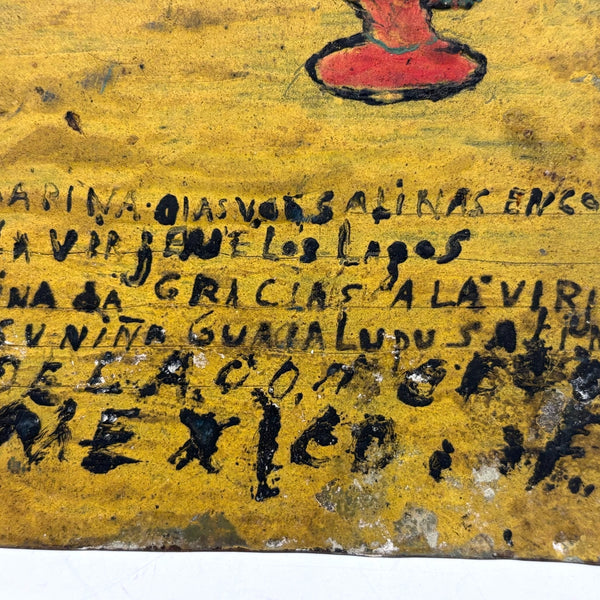 MARINA. DIAS VOTS SALINAS ENCO
LA VIRJEN E LOS LAGOS
INA dA GRICIAS A LA VIRI
SU NIÑA GUADALUDU SALIN
DE LA CO.
MEXICO. F.